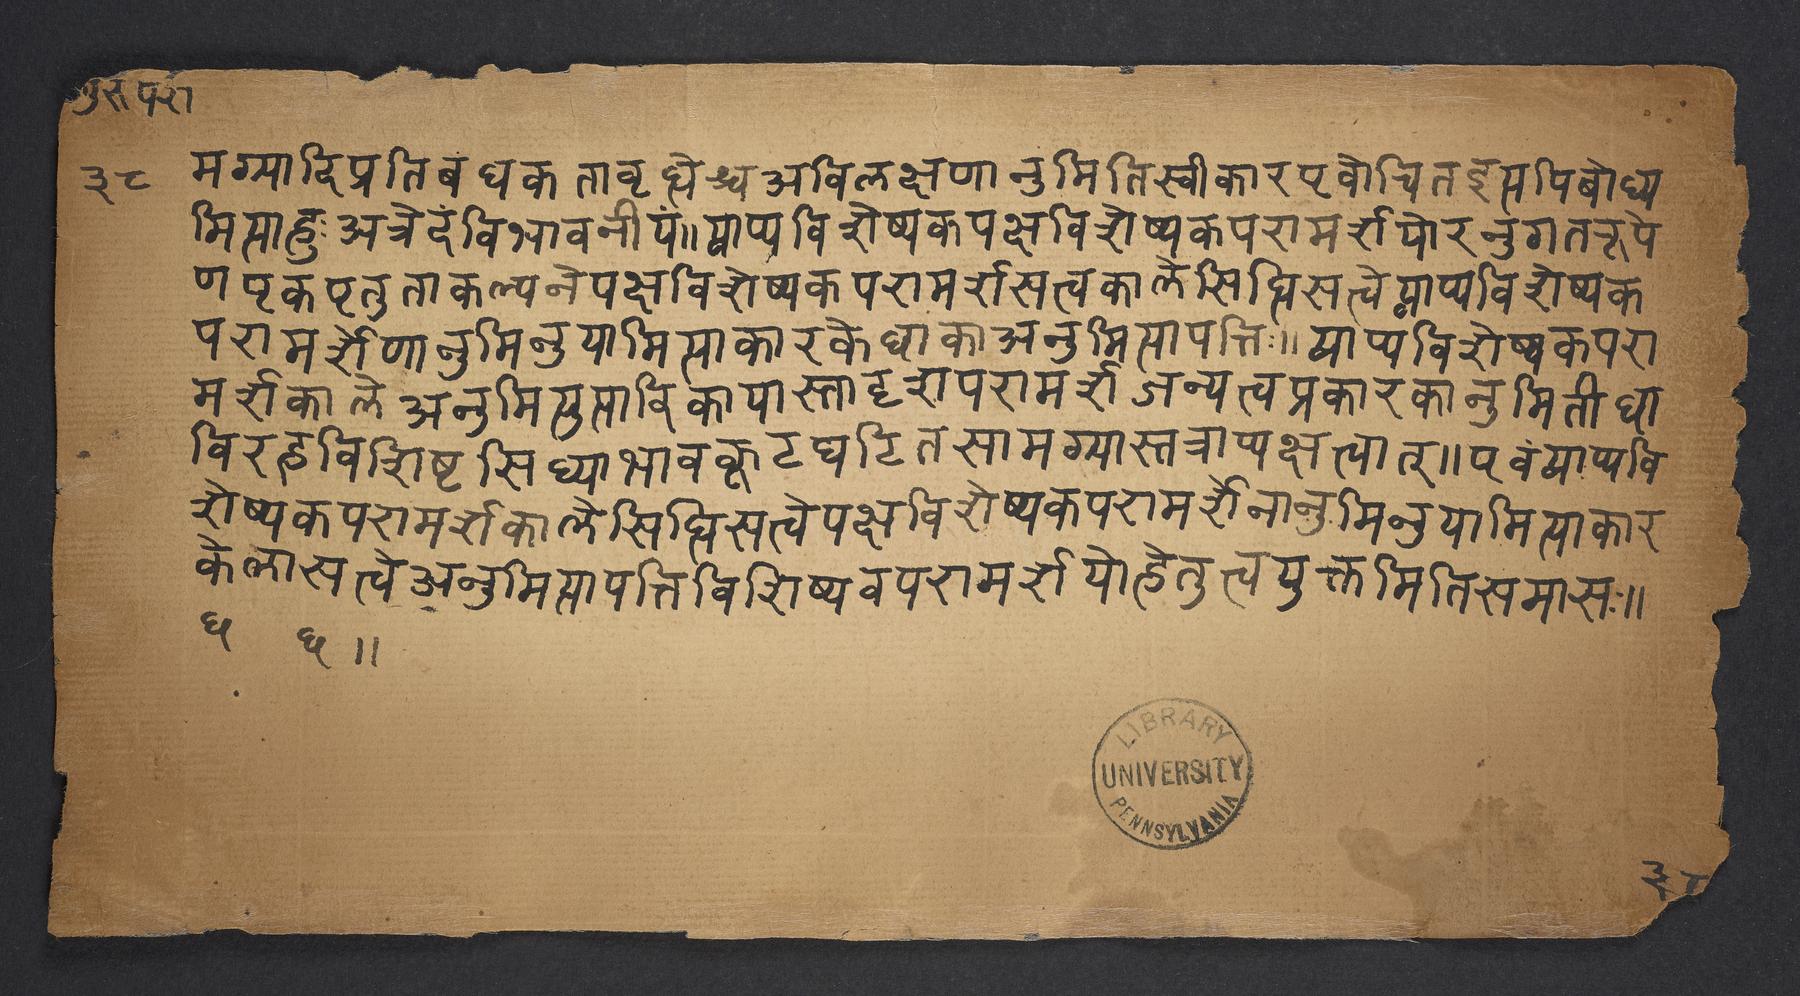 परा
३८
मग्र्यादिप्रतिबंधकतावृद्धेश्च अविलक्षणानुमितिस्वीकारएवोचितइत्यपिबोध्य
मित्याहुः अत्रेदंविभावनीयं॥ व्याप्यविशेष्यकपक्षविशेष्यकपरामर्शयोरनुगतरूपे
ण पृथक्पृथक्हेतुताकल्पनेपक्षविशेष्यकपरामर्शसत्वकालेसिद्धिसत्वेव्याप्यविशेष्यक
परामर्शेणानुमिनुयामित्याकारकेच्छाकाअनुमित्यापत्तिः॥ व्याप्यविशेष्यकपरा
मर्शकाले अनुमित्युत्पादिकायास्तादृशपरामर्शजन्यत्वप्रकारकानुमितीच्छा
विरहविशिष्टसिध्याभावकूटघटितसामग्र्यास्तत्राप्यक्षत्वात्॥ एवंव्याप्यवि
शेष्यकपरामर्शकालेसिद्धिसत्वेपक्षविशेष्यकपरामर्शेनानुमिनुयामित्याकार
केच्छासत्वेअनुमित्यापत्तिविशिष्यवपरामर्शयोर्हेतुत्वयुक्तमितिसमासः॥
छ छ ॥
LIBRARY
UNIVERSITY
PENNSYLVANIA
३८